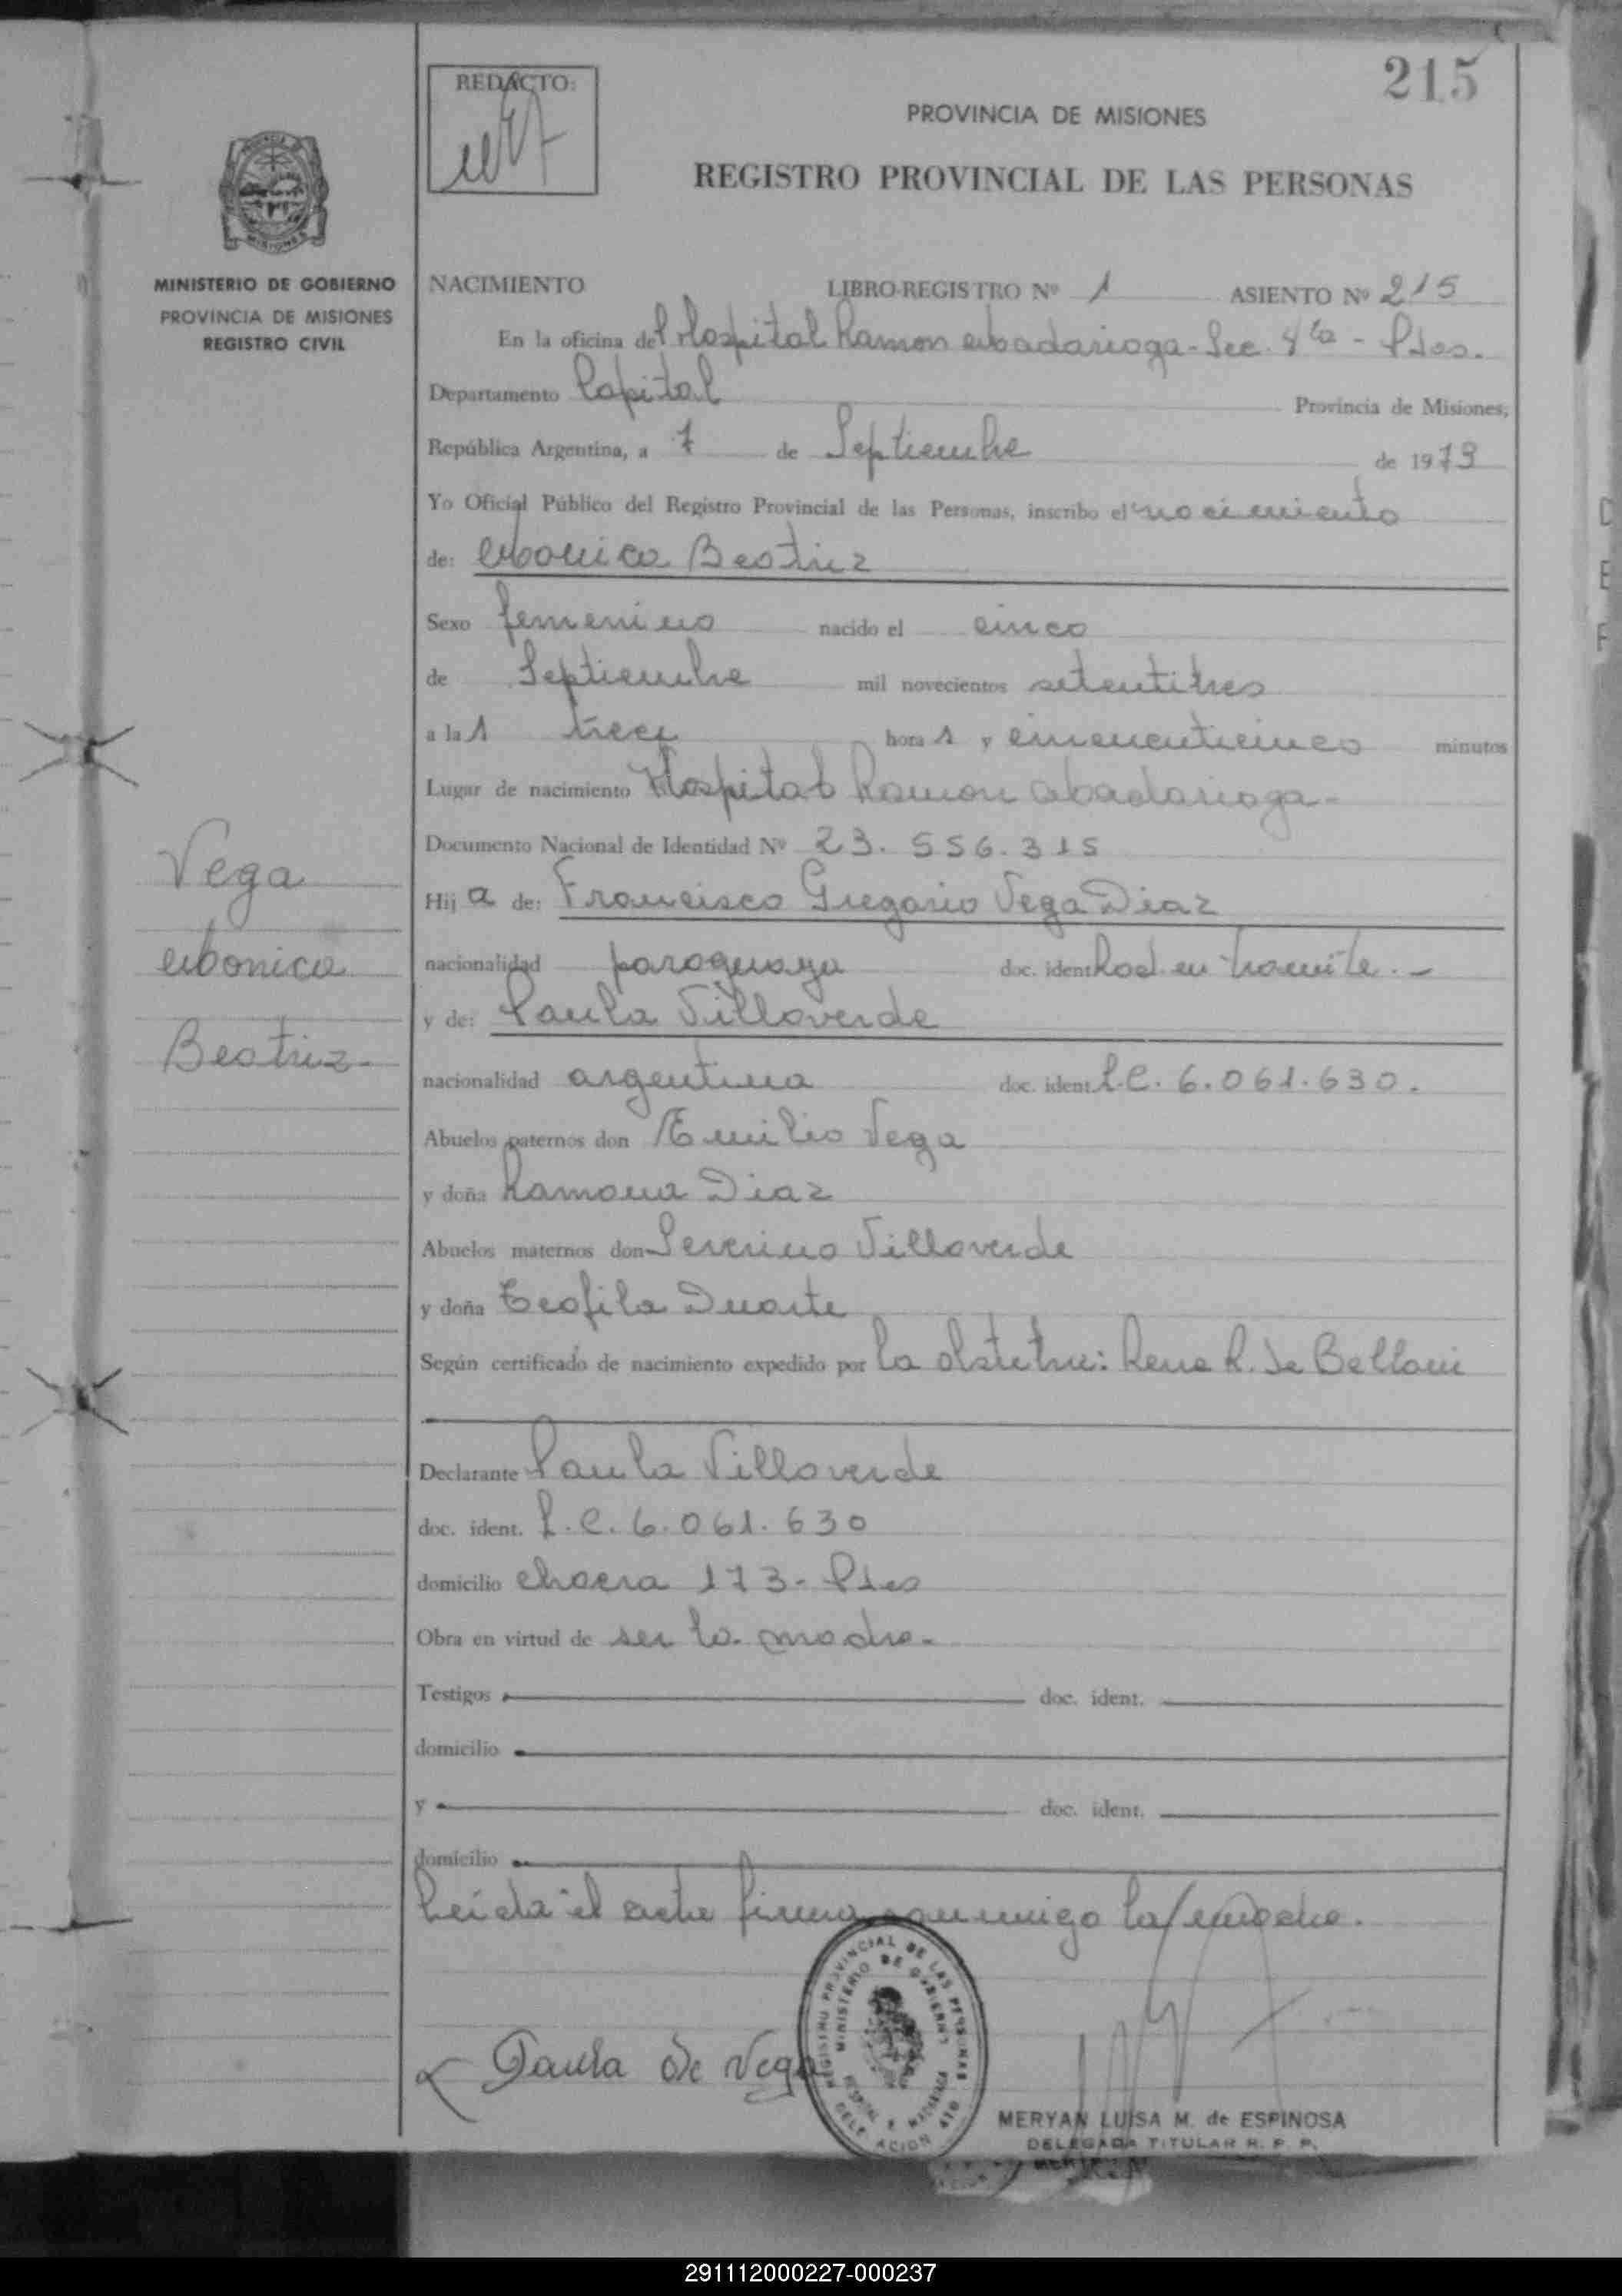 215
REDACTO:
PROVINCIA DE MISIONES
REGISTRO PROVINCIAL DE LAS PERSONAS
MINISTERIO DE GOBIERNO
PROVINCIA DE MISIONES
REGISTRO CIVIL
NACIMIENTO LIBRO-REGISTRO Nº 1 ASIENTO Nº 215
En la oficina del Hospital Ramon Madariaga - Sec. 4ta - Pdas.
Departamento Capital Provincia de Misiones,
República Argentina, a 7 de Septiembre de 1973
Yo Oficial Público del Registro Provincial de las Personas, inscribo el nacimiento
de: Monica Beatriz
Sexo femenino nacido el cinco
de Septiembre mil novecientos setentitres
a la s trece hora s y cincuenticinco minutos
Lugar de nacimiento Hospital Ramon Madariaga -
Documento Nacional de Identidad Nº 23.556.315
Hij a de: Francisco Gregorio Vega Diaz
nacionalidad paraguaya doc. ident. Rad. en tramite. -
y de: Paula Villaverde
nacionalidad argentina doc. ident. L.C. 6.061.630.
Abuelos paternos don Emilio Vega
y doña Ramona Diaz
Abuelos maternos don Severino Villaverde
y doña Teofila Duarte
Según certificado de nacimiento expedido por la obstetri: Rene R. de Belloni
Declarante Paula Villaverde
doc. ident. L.C. 6.061.630
domicilio chacra 173 - Pdas
Obra en virtud de ser la madre -
Testigos doc. ident.
domicilio
y doc. ident.
domicilio
Leída el acta firma conmigo la madre.
Vega
Monica
Beatriz -
Paula de Vega
REGISTRO PROVINCIAL DE LAS PERSONAS
MINISTERIO DE GOBIERNO
HOSPITAL R. MADARIAGA
DELEGACION 4TO
MERYAN LUISA M. de ESPINOSA
DELEGADA TITULAR R. P. P.
291112000227-000237